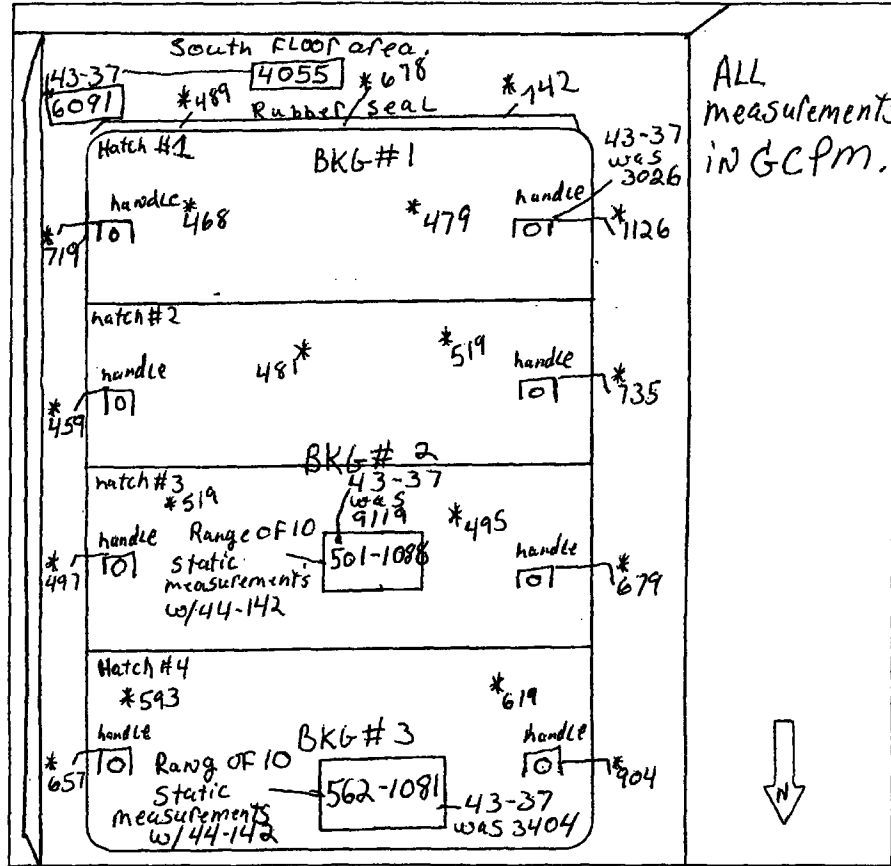 South Floor area.
43-37
4055
*678
*142
6091
*489
Rubber Seal
ALL
measurements
iN GCPM.
Hatch #1
BKG#1
43-37
was
3026
handle
*468
*479
handle
*719
*1126
hatch #2
481*
*519
handle
handle
*459
*735
BKG# 2
hatch #3
*519
43-37
was
9119
*495
handle
Range OF 10
static
measurements
w/44-142
501-1088
handle
*497
*679
Hatch #4
*593
*619
handle
BKG# 3
handle
*657
Rang OF 10
Static
measurements
w/44-142
562-1081
43-37
was 3404
*904
N